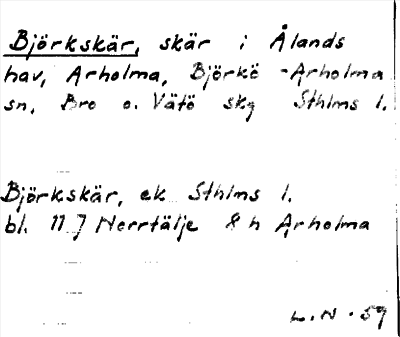 Björkskär, skär i Ålands
hav, Arholma, Björkö-Arholma
sn, Bro o. Vätö skg Sthlms l.
Björkskär, ek Sthlms l.
bl. 11 J Norrtälje 8 h Arholma
L.N. 59